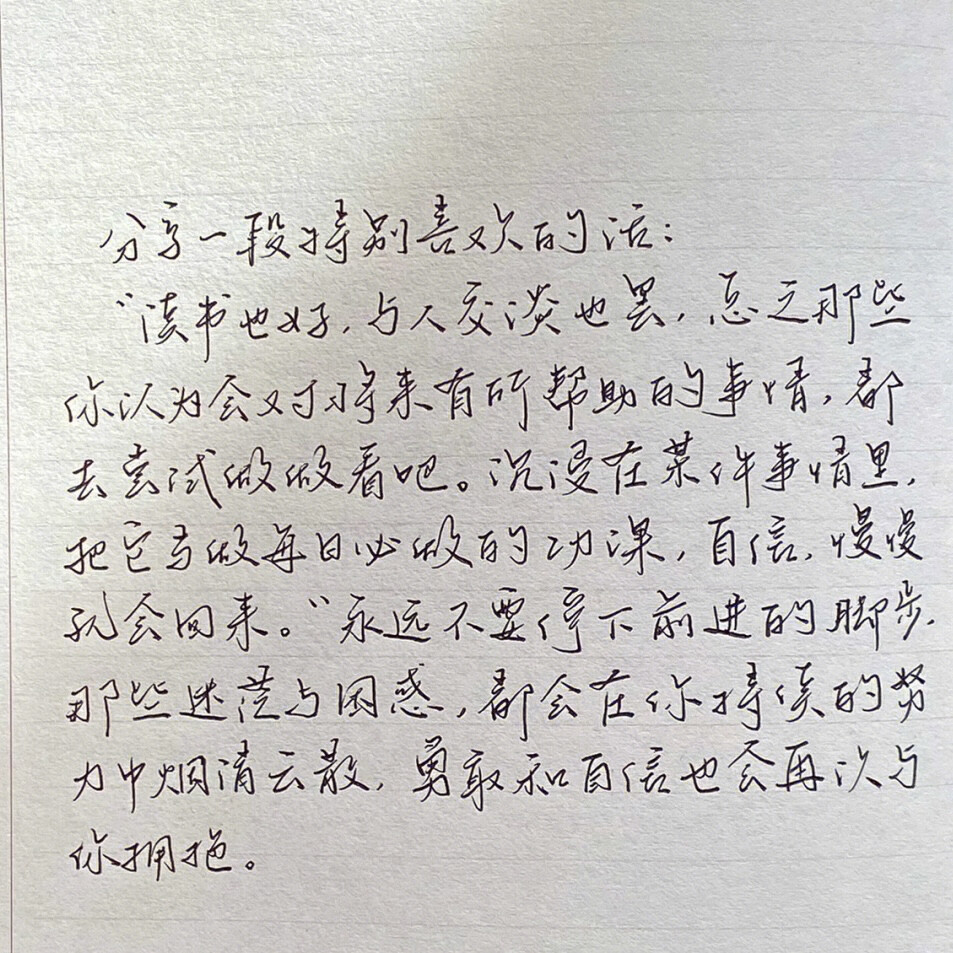 分享一段特别喜欢的话：
“读书也好，与人交谈也罢，总之那些
你认为会对将来有所帮助的事情，都
去尝试做做看吧。沉浸在某件事情里，
把它当做每日必做的功课，自信，慢慢
就会回来。”永远不要停下前进的脚步，
那些迷茫与困惑，都会在你持续的努
力中烟消云散，勇敢和自信也会再次与
你拥抱。